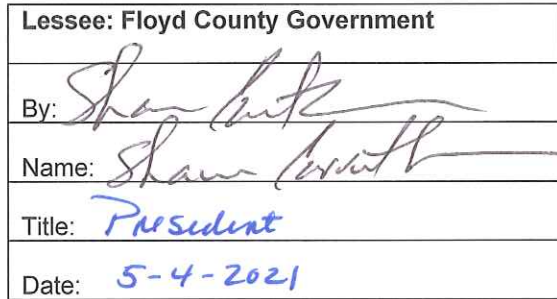 Lessee: Floyd County Government
By: Shawn
Name: Shawn
Title: President
Date: 5-4-2021